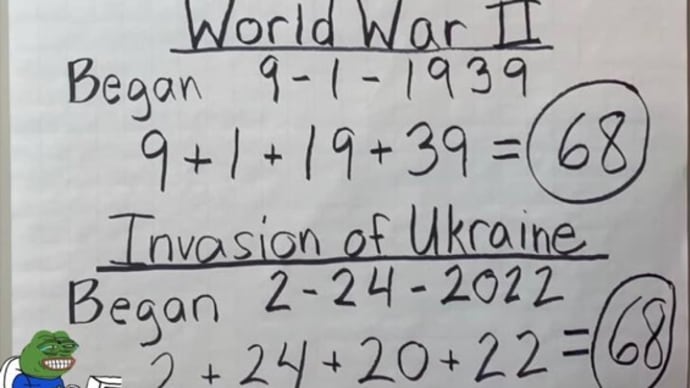 World War II
Began 9-1-1939
9+1+19+39=68
Invasion of Ukraine
Began 2-24-2022
2+24+20+22=68